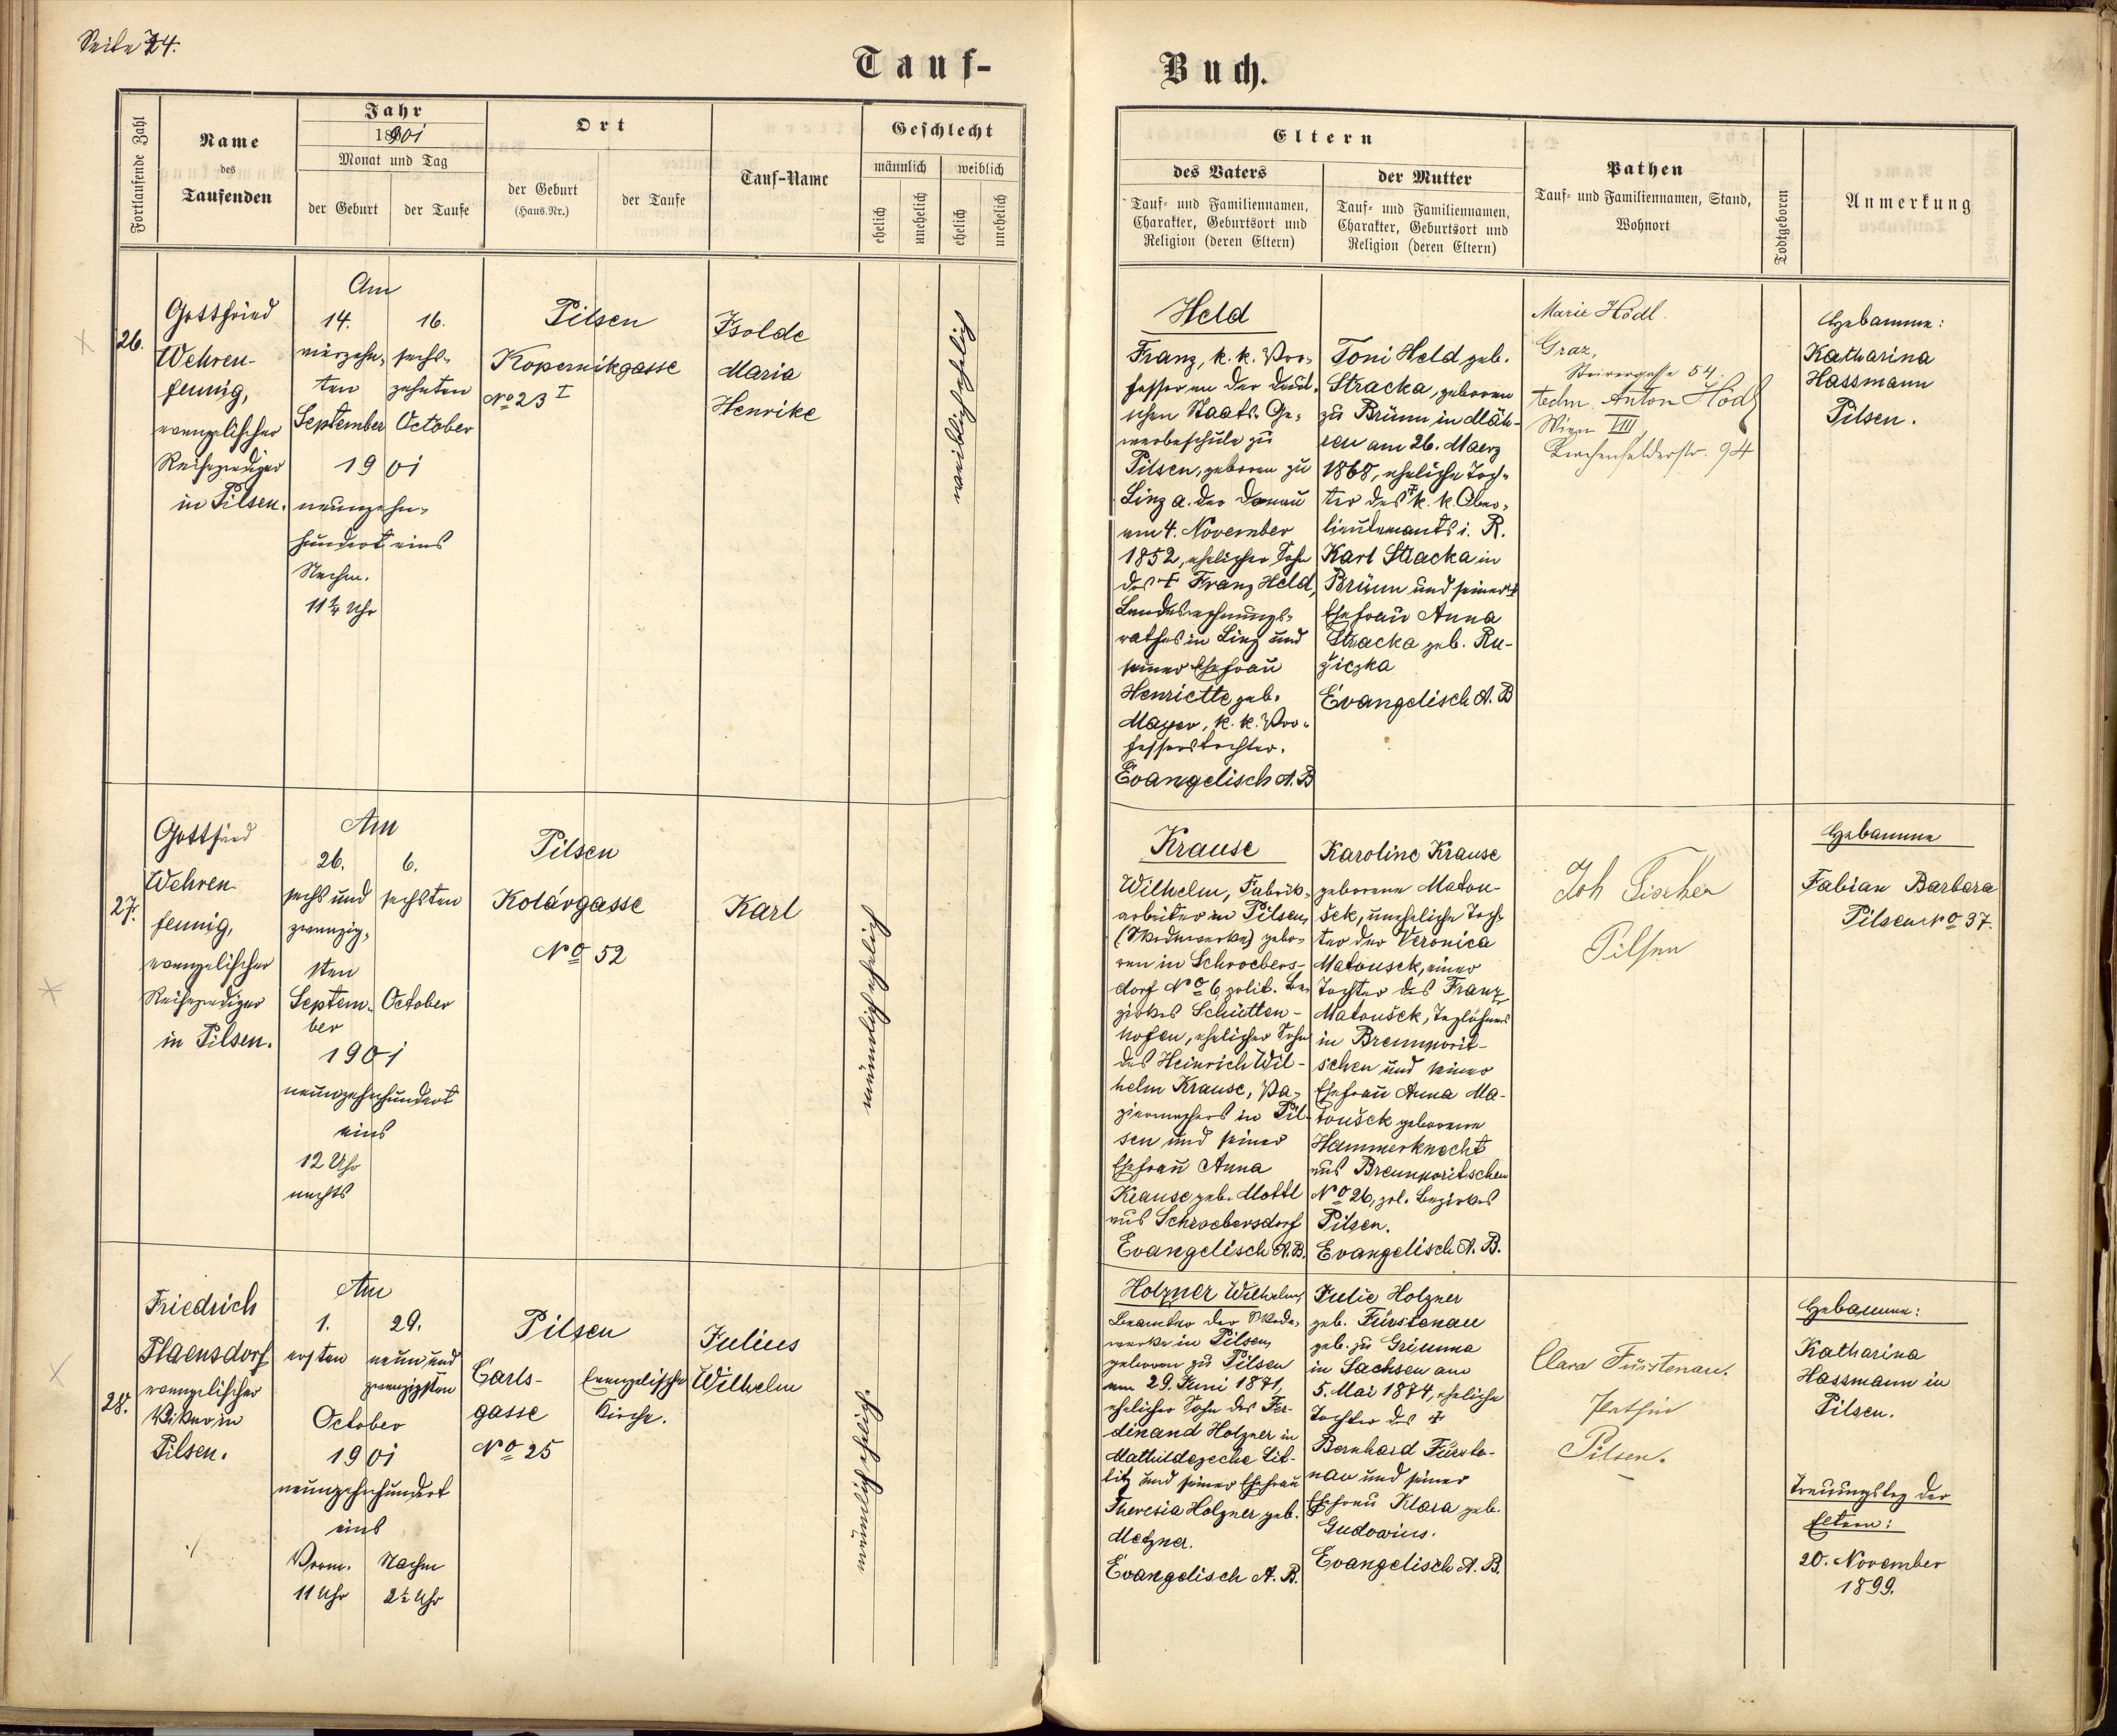 Seite 74.
Tauf-
Buch.
Fortlaufende Zahl
Name
des
Taufenden
Jahr
1901
Monat und Tag
der Geburt
der Taufe
Ort
der Geburt
(Haus-Nr.)
der Taufe
Tauf-Name
Geschlecht
männlich
weiblich
ehelich
unehelich
ehelich
unehelich
Eltern
des Vaters
Tauf- und Familiennamen,
Charakter, Geburtsort und
Religion (deren Eltern)
der Mutter
Tauf- und Familiennamen,
Charakter, Geburtsort und
Religion (deren Eltern)
Pathen
Tauf- und Familiennamen, Stand,
Wohnort
Todtgeboren
Anmerkung
26.
Gottfried
Wehren-
fennig,
evangelischer
Reiseprediger
in Pilsen.
Am
14. 16.
vierzehn- sechs-
ten zehnten
September October
1901
neunzehn-
hundert eins
Nachm.
11 1/4 Uhr
Pilsen
Kopernikgasse
No 23 I
Isolde
Maria
Henrike
weiblich ehelich
Held
Franz, k. k. Pro-
fessor an der deut-
schen Staats-Ge-
werbeschule zu
Pilsen, geboren zu
Linz a. der Donau
am 4. November
1852, ehelicher Sohn
des † Franz Held,
Landesrechnungs-
rathes in Linz und
seiner Ehefrau
Henriette geb.
Mayer, k. k. Pro-
fessorstochter.
Evangelisch A. B
Toni Held geb.
Stracka, geboren
zu Brünn in Mäh-
ren am 26. Maerz
1868, eheliche Toch-
ter des † k. k. Ober-
lieutenants i. R.
Karl Stracka in
Brünn und seiner †
Ehefrau Anna
Stracka geb. Ru-
žiczka
Evangelisch A. B
Marie Hödl
Graz,
Steirergasse 54.
techn. Anton Hödl
Wien VIII
Lerchenfelderstr. 94
Hebamme:
Katharina
Hassmann
Pilsen.
27.
Gottfried
Wehren-
fennig,
evangelischer
Reiseprediger
in Pilsen.
Am
26. 6.
sechs und sechsten
zwanzig-
sten
Septem- October
ber
1901
neunzehnhundert
eins
12 Uhr
nachts
Pilsen
Kolárgasse
No 52
Karl
männlich ehelich
Krause
Wilhelm, Fabrik-
arbeiter in Pilsen,
(Skodawerke) gebo-
ren in Schroebers-
dorf No 6, polit. Be-
zirkes Schütten-
hofen, ehelicher Sohn
des Heinrich Wil-
helm Krause, Pa-
piermachers in Pil-
sen und seiner
Ehefrau Anna
Krause, geb. Mottl
aus Schroebersdorf
Evangelisch A. B.
Karoline Krause
geborene Matou-
šek, uneheliche Toch-
ter der Veronica
Matoušek, einer
Tochter des Franz
Matoušek, Taglöhners
in Brennporit-
schen und seiner
Ehefrau Anna Ma-
toušek geborene
Hammerknecht
aus Brennporitschen
No 26, pol. Bezirkes
Pilsen.
Evangelisch A. B.
Joh Fischer
Pilsen
Hebamme
Fabian Barbara
Pilsen No 37.
28.
Friedrich
Plaensdorf
evangelischer
Vikar in
Pilsen.
Am
1. 29.
ersten neun und
zwanzigsten
October
1901
neunzehnhundert
eins
Vorm. Nachm
11 Uhr 2 1/2 Uhr
Pilsen
Carls- Evangelische
gasse Kirche.
No 25
Julius
Wilhelm
männlich ehelich.
Holzner Wilhelm,
Beamter der Skoda-
werke in Pilsen,
geboren zu Pilsen
am 29. Juni 1871,
ehelicher Sohn des Fer-
dinand Holzner in
Mathildezeche Lit-
litz und seiner Ehefrau
Theresia Holzner geb.
Metzner.
Evangelisch A. B.
Julie Holzner
geb. Fürstenau
geb. zu Grimma
in Sachsen am
5. Mai 1874, eheliche
Tochter des †
Bernhard Fürste-
nau und seiner
Ehefrau Klara geb.
Gudovius.
Evangelisch A. B.
Clara Fürstenau.
Pathin
Pilsen.
Hebamme:
Katharina
Hassmann in
Pilsen.
Trauungstag der
Eltern:
20. November
1899.